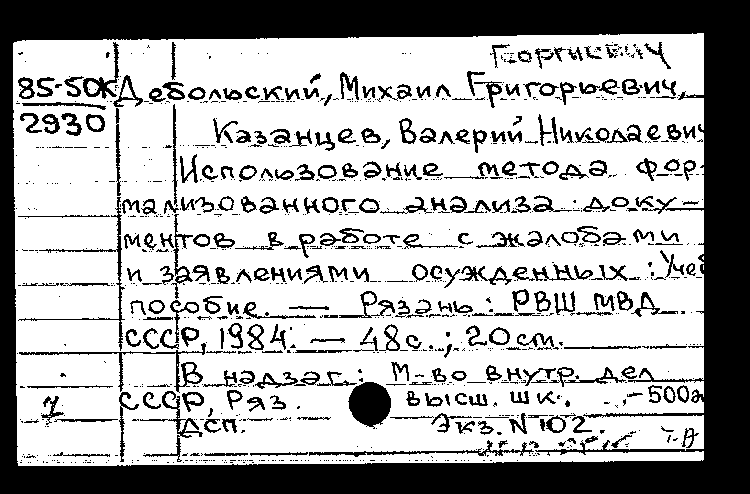 Георгиевич
85-50К Дебольский, Михаил Григорьевич,
2930 Казанцев, Валерий Николаевич
Использование метода фор-
мализованного анализа доку-
ментов в работе с жалобами
и заявлениями осужденных : Учеб
пособие. — Рязань : РВШ МВД
СССР, 1984. — 48с. ; 20см.
В надзаг.: М-во внутр. дел
СССР, Ряз. высш. шк. — 500э
ДСП. Экз. N 102.